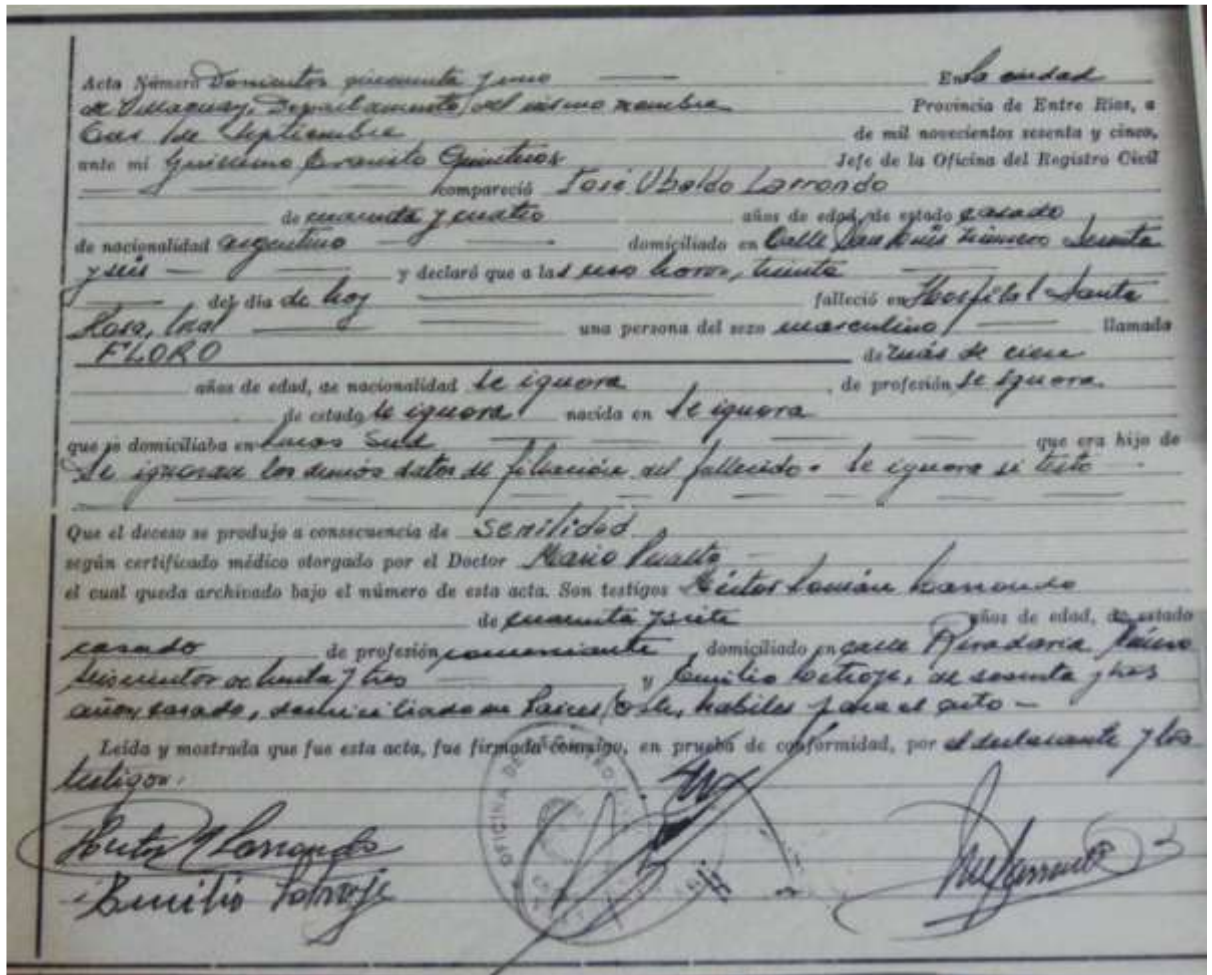 Acta Número Doscientos cincuenta y uno En la ciudad
de Villaguay, Departamento del mismo nombre Provincia de Entre Ríos, a
tres de Septiembre de mil novecientos sesenta y cinco,
ante mí Guillermo Evaristo Quinteros Jefe de la Oficina del Registro Civil
compareció José Ubaldo Larrondo
de cuarenta y cuatro años de edad, de estado casado
de nacionalidad argentino domiciliado en Calle San Luis número
y seis y declaró que a las una horas, treinta
del día de hoy falleció en Hospital Santa
Rosa, local una persona del sexo masculino llamada
FLORO de más de cien
años de edad, de nacionalidad se ignora, de profesión se ignora.
de estado se ignora nacida en se ignora
que se domiciliaba en Lucas Sud que era hijo de
Se ignoran los demás datos de filiación del fallecido. Se ignora si testó
Que el deceso se produjo a consecuencia de senilidad
según certificado médico otorgado por el Doctor Mario
el cual queda archivado bajo el número de esta acta. Son testigos Héctor Larrondo
de cuarenta y siete años de edad, de estado
casado de profesión comerciante, domiciliado en calle Rivadavia número
seiscientos ochenta y tres y Emilio, de sesenta y tres
años, casado, domiciliado en Raíces Este, hábiles para el acto –
Leída y mostrada que fue esta acta, fue firmada conmigo, en prueba de conformidad, por el declarante y los
testigos.
OFICINA DE
Hector Larrondo
Emilio